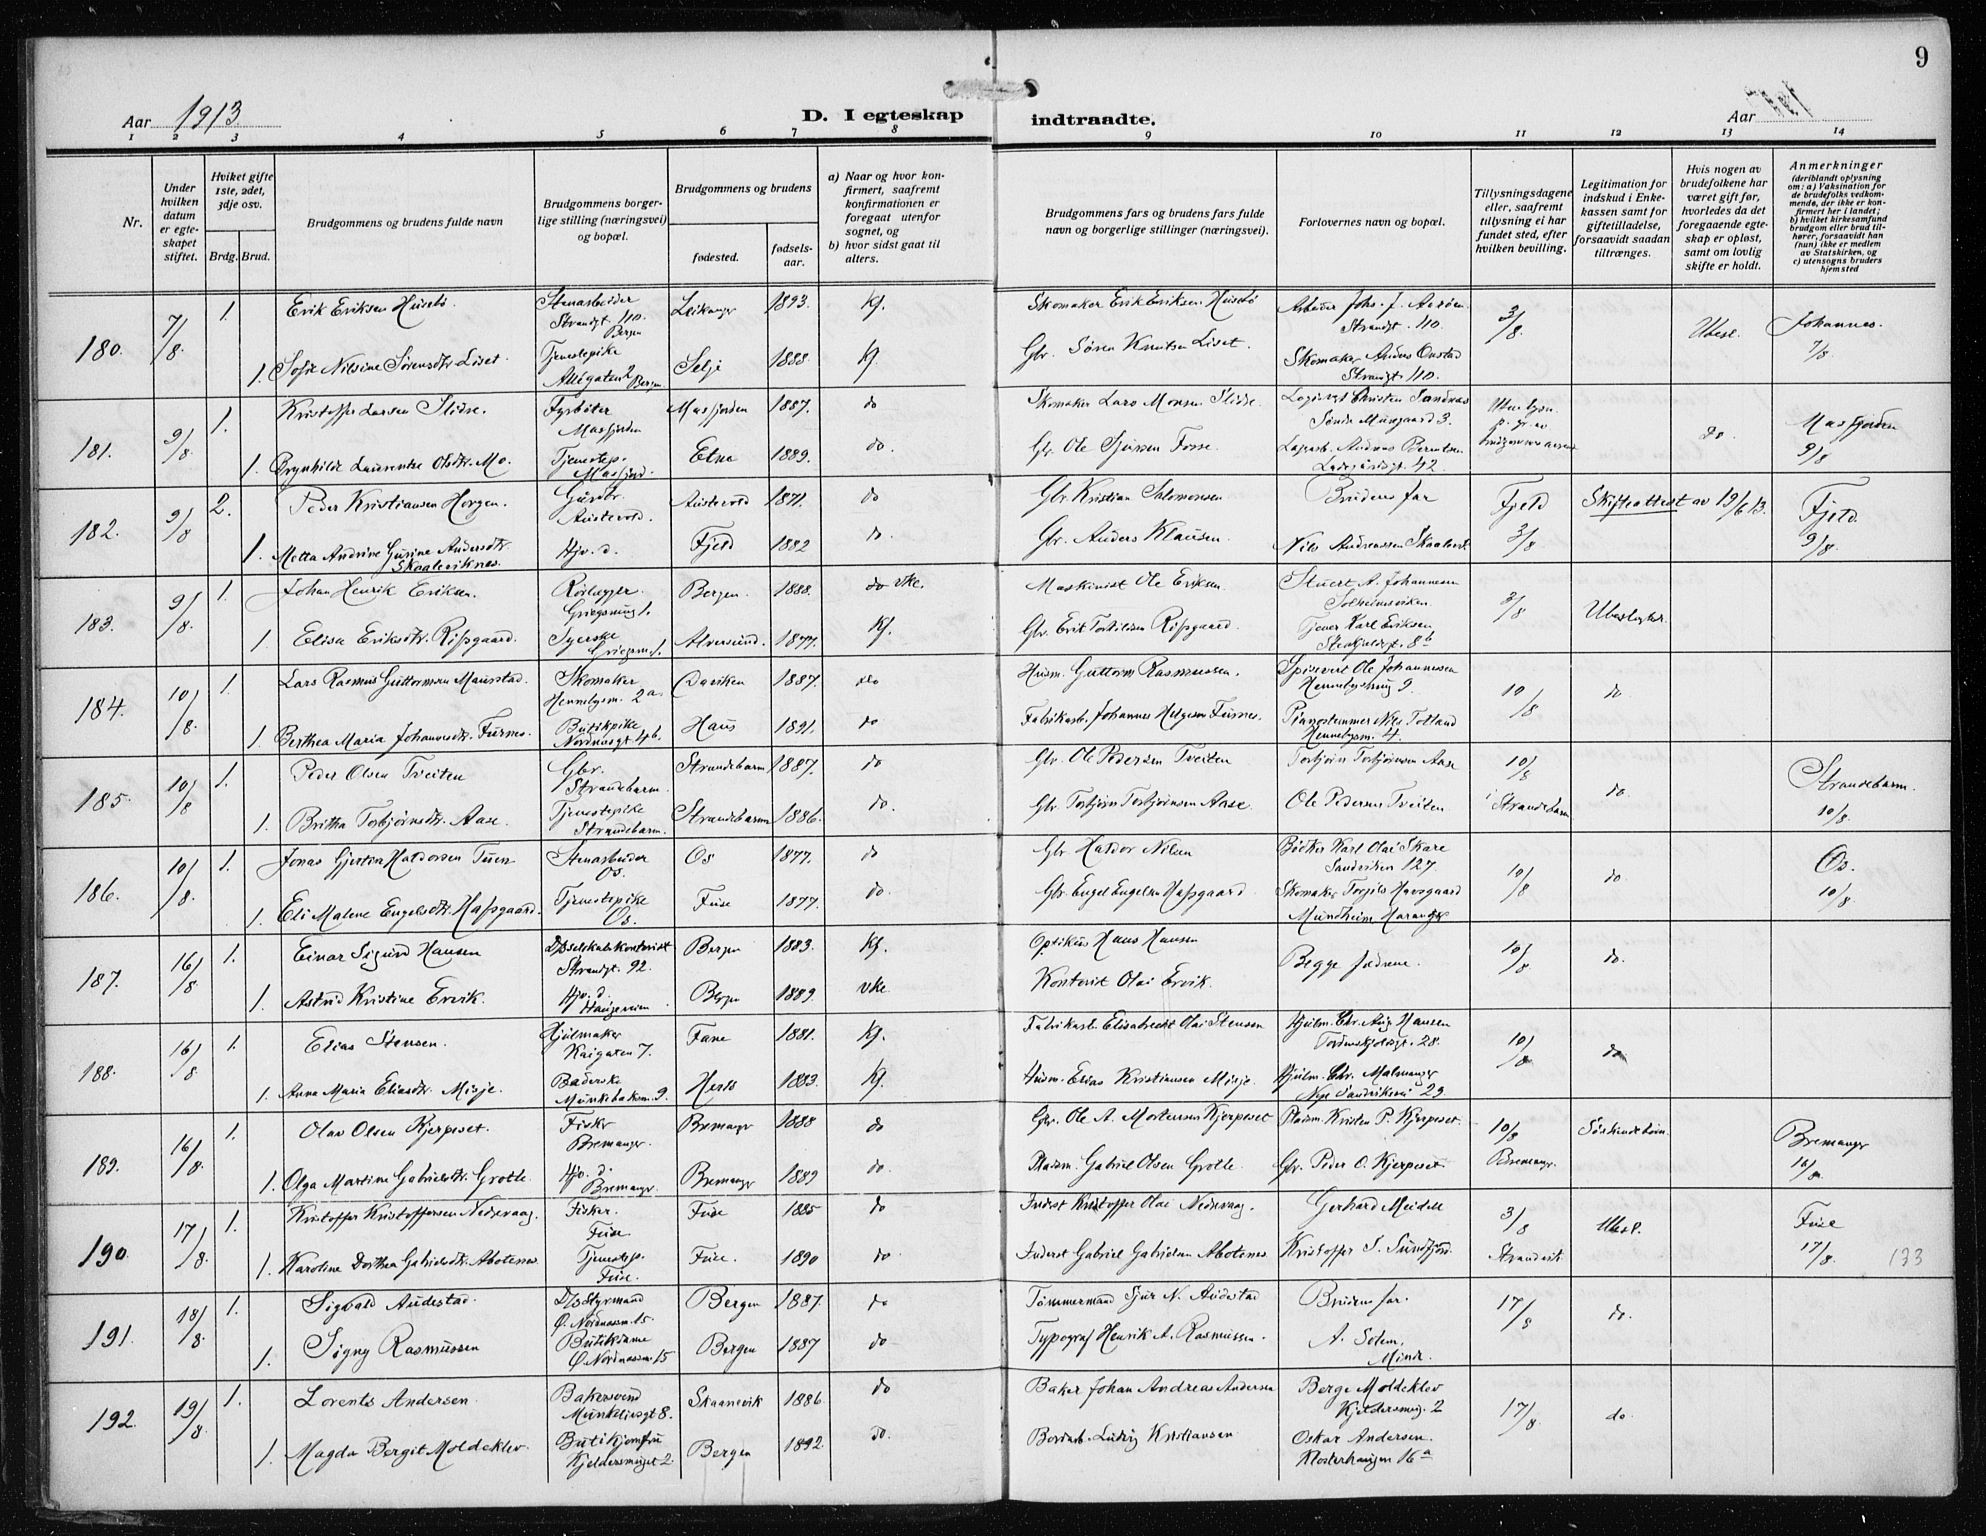 9
Aar 1913. D. I egteskap indtraadte. Aar
1 2 3 4 5 6 7 8 9 10 11 12 13 14
Nr.
Under hvilken datum er egteskapet stiftet.
Hviket gifte 1ste, 2det, 3dje osv.
Brdg. Brud.
Brudgommens og brudens fulde navn
Brudgommens borgerlige stilling (næringsvei) og bopæl.
Brudgommens og brudens
fødested.
fødselsaar.
a) Naar og hvor konfirmert, saafremt konfirmationen er foregaat utenfor sognet, og
b) hvor sidst gaat til alters.
Brudgommens fars og brudens fars fulde navn og borgerlige stillinger (næringsvei).
Forlovernes navn og bopæl.
Tillysningsdagene eller, saafremt tillysning ei har fundet sted, efter hvilken bevilling.
Legitimation for indskud i Enkekassen samt for giftetilladelse, forsaavidt saadan tiltrænges.
Hvis nogen av brudefolkene har været gift før, hvorledes da det foregaaende egteskap er opløst, samt om lovlig skifte er holdt.
Anmerkninger (deriblandt oplysning om: a) Vaksination for de brudefolks vedkommende, der ikke er konfirmert her i landet; b) hvilket kirkesamfund brudgom eller brud tilhører, forsaavidt han (hun) ikke er medlem av Statskirken, og c) utensogns bruders hjemsted
180. 7/8 1. Erik Eriksen Husebø. Stenarbeider Strandgt. 110. Bergen Leikanger 1893. Kf. Skomaker Erik Eriksen Husebø Strandgt. 110. 3/8 Ubesl. Johannes. 7/8
1. Sofie Nilsine Sørensdtr Liset. Tjenestepike Allégaten 2 Bergen Selje 1888. Kf. Gbr. Søren Knutsen Liset. Skomaker Anders Onstad Strandgt. 110.
181. 9/8 1. Kristoffer Larsen Slidse. Fyrbøter Masfjorden Masfjorden 1887. do Skomaker Lars Monsen Slidse. do. Masfjorden 9/8
1. Brynhilde Laurentse Olsdtr. Mo. Tjenestep. Masfjord. Etne 1889. do. Gbr. Ole Sjursen Fosse
182. 9/8 2. Peder Kristiansen Horgen. Gårdbr. Austevold. Austevold 1871. do Gbr. Kristian Salomonsen Brudens far Fjeld 3/8 Skifteattest av 19/6 13. Fjeld. 9/8
1. Metta Andrine Gurine Andersdtr. Skaaleviknes. Hjv. d. Fjeld 1882 do. Gbr. Anders Klausen.
183. 9/8 1. Johan Henrik Eriksen. Rørlegger Griegsmug 1. Bergen. 1888. do vke. Maskinist Ole Eriksen Stuert A. Johannesen Solheimsviken 3/8 Ubeslegtet.
1. Elisa Eriksdtr. Risgaard. Syerske Griegsm. 1. Alversund. 1877. Kf. Tjener Karl Eriksen
184. 10/8 1. Lars Rasmus Guttormsen Maurstad. Skomaker Hennebysm. 2a. Daviken 1887. do Husm. Guttorm Rasmussen. Spisevert Ole Johannesen 10/8 do.
1. Berthea Maria Johannesdtr. Furnes. Butikpike Nordnesgt 46. Haus 1891. do Fabrikarb. Johannes Helgesen Furnes. Pianostemmer Nils Totland Hennebysm. 4.
185. 10/8 1. Peder Olsen Tveiten Gbr. Strandebarm. Strandebarm 1887. do Gbr. Ole Pedersen Tveiten Torbjørn Torbjørnsen Aase 10/8 i Strandebarm do. Strandebarm. 10/8.
1. Britha Torbjørnsdtr. Aase. Tjenestepike Strandebarm. Strandebarm 1886. do. Gbr. Torbjørn Torbjørnsen Aase. Ole Pedersen Tveiten
186. 10/8. 1. Jonas Gjertin Haldorsen Tuen Stenarbeider Os. Os 1877. do Gbr Haldor Nilsen Bødker Karl Olai Skare Sandviken 127. 10/8 do. Os. 10/8.
1. Eli Malene Engelsdtr. Hafsgaard. Tjenestepike Os. Fuse 1877. do. Gbr. Engel Engelsen Hafsgaard Skomaker Torgils Havsgaard
187. 16/8 1. Einar Sigurd Hansen Strandgt. 92. Bergen 1883. Kf. Optikus Hans Hansen Begge fædrene. 10/8 do.
1. Astrid Kristine Ervik. Hjv. d. Haugeveien Bergen 1889. vke Kontorist Olai Ervik.
188. 16/8 1. Elias Stensen. Hjulmaker Kaigaten 7. Fane 1881. Kf. Fabrikarb. Elisabrecht Olai Stensen Hjulm. Chr. Aug Hansen Tordenskjoldsgt. 28. 10/8 do
1. Anna Maria Eliasdtr. Misje. Baderske Munkebæksm. 9. Herlø 1883. Kf. Husm. Elias Kristiansen Misje. Hjulm. Chr. Malmanger Nye Sandviksvei 23
189. 16/8. 1. Olav Olsen Kjerpeset. Fisker Bremanger. Bremanger 1888 do Gbr. Ole A. Mortensen Kjerpeset Pladsm. Kristen P. Kjerpeset. 10/8 Bremanger. Bremanger
1. Olga Martine Gabrielsdtr. Grotle. Hjv. d. Bremanger. Bremanger 1889 do. Pladsm. Gabriel Olsen Grotle. Gbr. Peder O. Kjerpeset.
190. 17/8. 1. Kristoffer Kristoffersen Nedrevaag. Fisker. Fuse. Fuse 1885 do Inderst Kristoffer Olai Nedrevaag. Gerhard Meidell 3/8 Strandvik Ubesl. Fuse 17/8. 133
1. Karoline Dorthea Gabrielsdtr. Aboteness. Tjenestep. Fuse. Fuse. 1890 do Inderst Gabriel Gabrielsen Abotenes. Kristoffer S. Sundfjord.
191. 18/8. 1. Sigvald Audestad. D/S Styrmand Ø. Nordnessm. 15. Bergen 1887. do Tømmermand Sjur N. Audestad Brudens far. 17/8 do.
1. Signy Rasmussen Butikdame Ø. Nordnessm. 15 Bergen 1887 do Typograf Henrik A. Rasmussen. A. Solem. Minde.
192. 19/8. 1. Lorents Andersen. Bakersvend Munkelivsgt 8. Skaanevik 1886. do Baker Johan Andreas Andersen Berge Moldeklev Kjeldersmug. 2 17/8. do.
1. Magda Bergit Moldeklev. Butikjomfru Kjeldersmuget 2. Bergen 1892. do. Bordarb. Ludvig Kristiansen Oskar Andersen. Klosterhaugen 16a